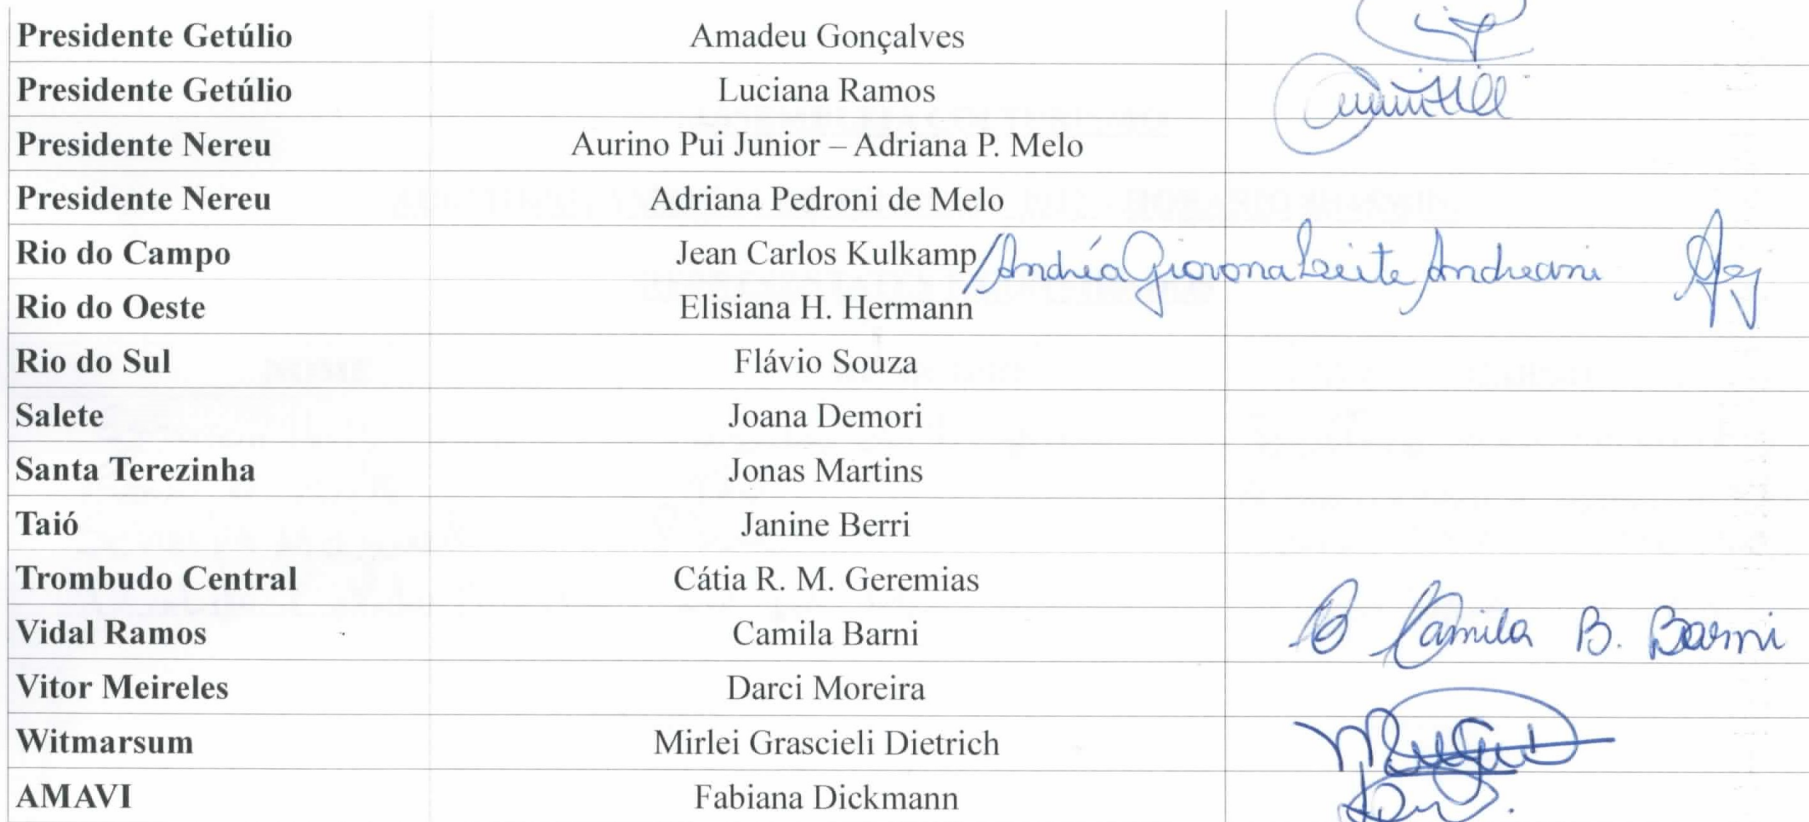 Presidente Getúlio Amadeu Gonçalves
Presidente Getúlio Luciana Ramos
Presidente Nereu Aurino Pui Junior – Adriana P. Melo
Presidente Nereu Adriana Pedroni de Melo
Rio do Campo Jean Carlos Kulkamp /Andréa Giovona Leite Andreani
Rio do Oeste Elisiana H. Hermann
Rio do Sul Flávio Souza
Salete Joana Demori
Santa Terezinha Jonas Martins
Taió Janine Berri
Trombudo Central Cátia R. M. Geremias
Vidal Ramos Camila Barni Camila B. Barni
Vitor Meireles Darci Moreira
Witmarsum Mirlei Grascieli Dietrich
AMAVI Fabiana Dickmann